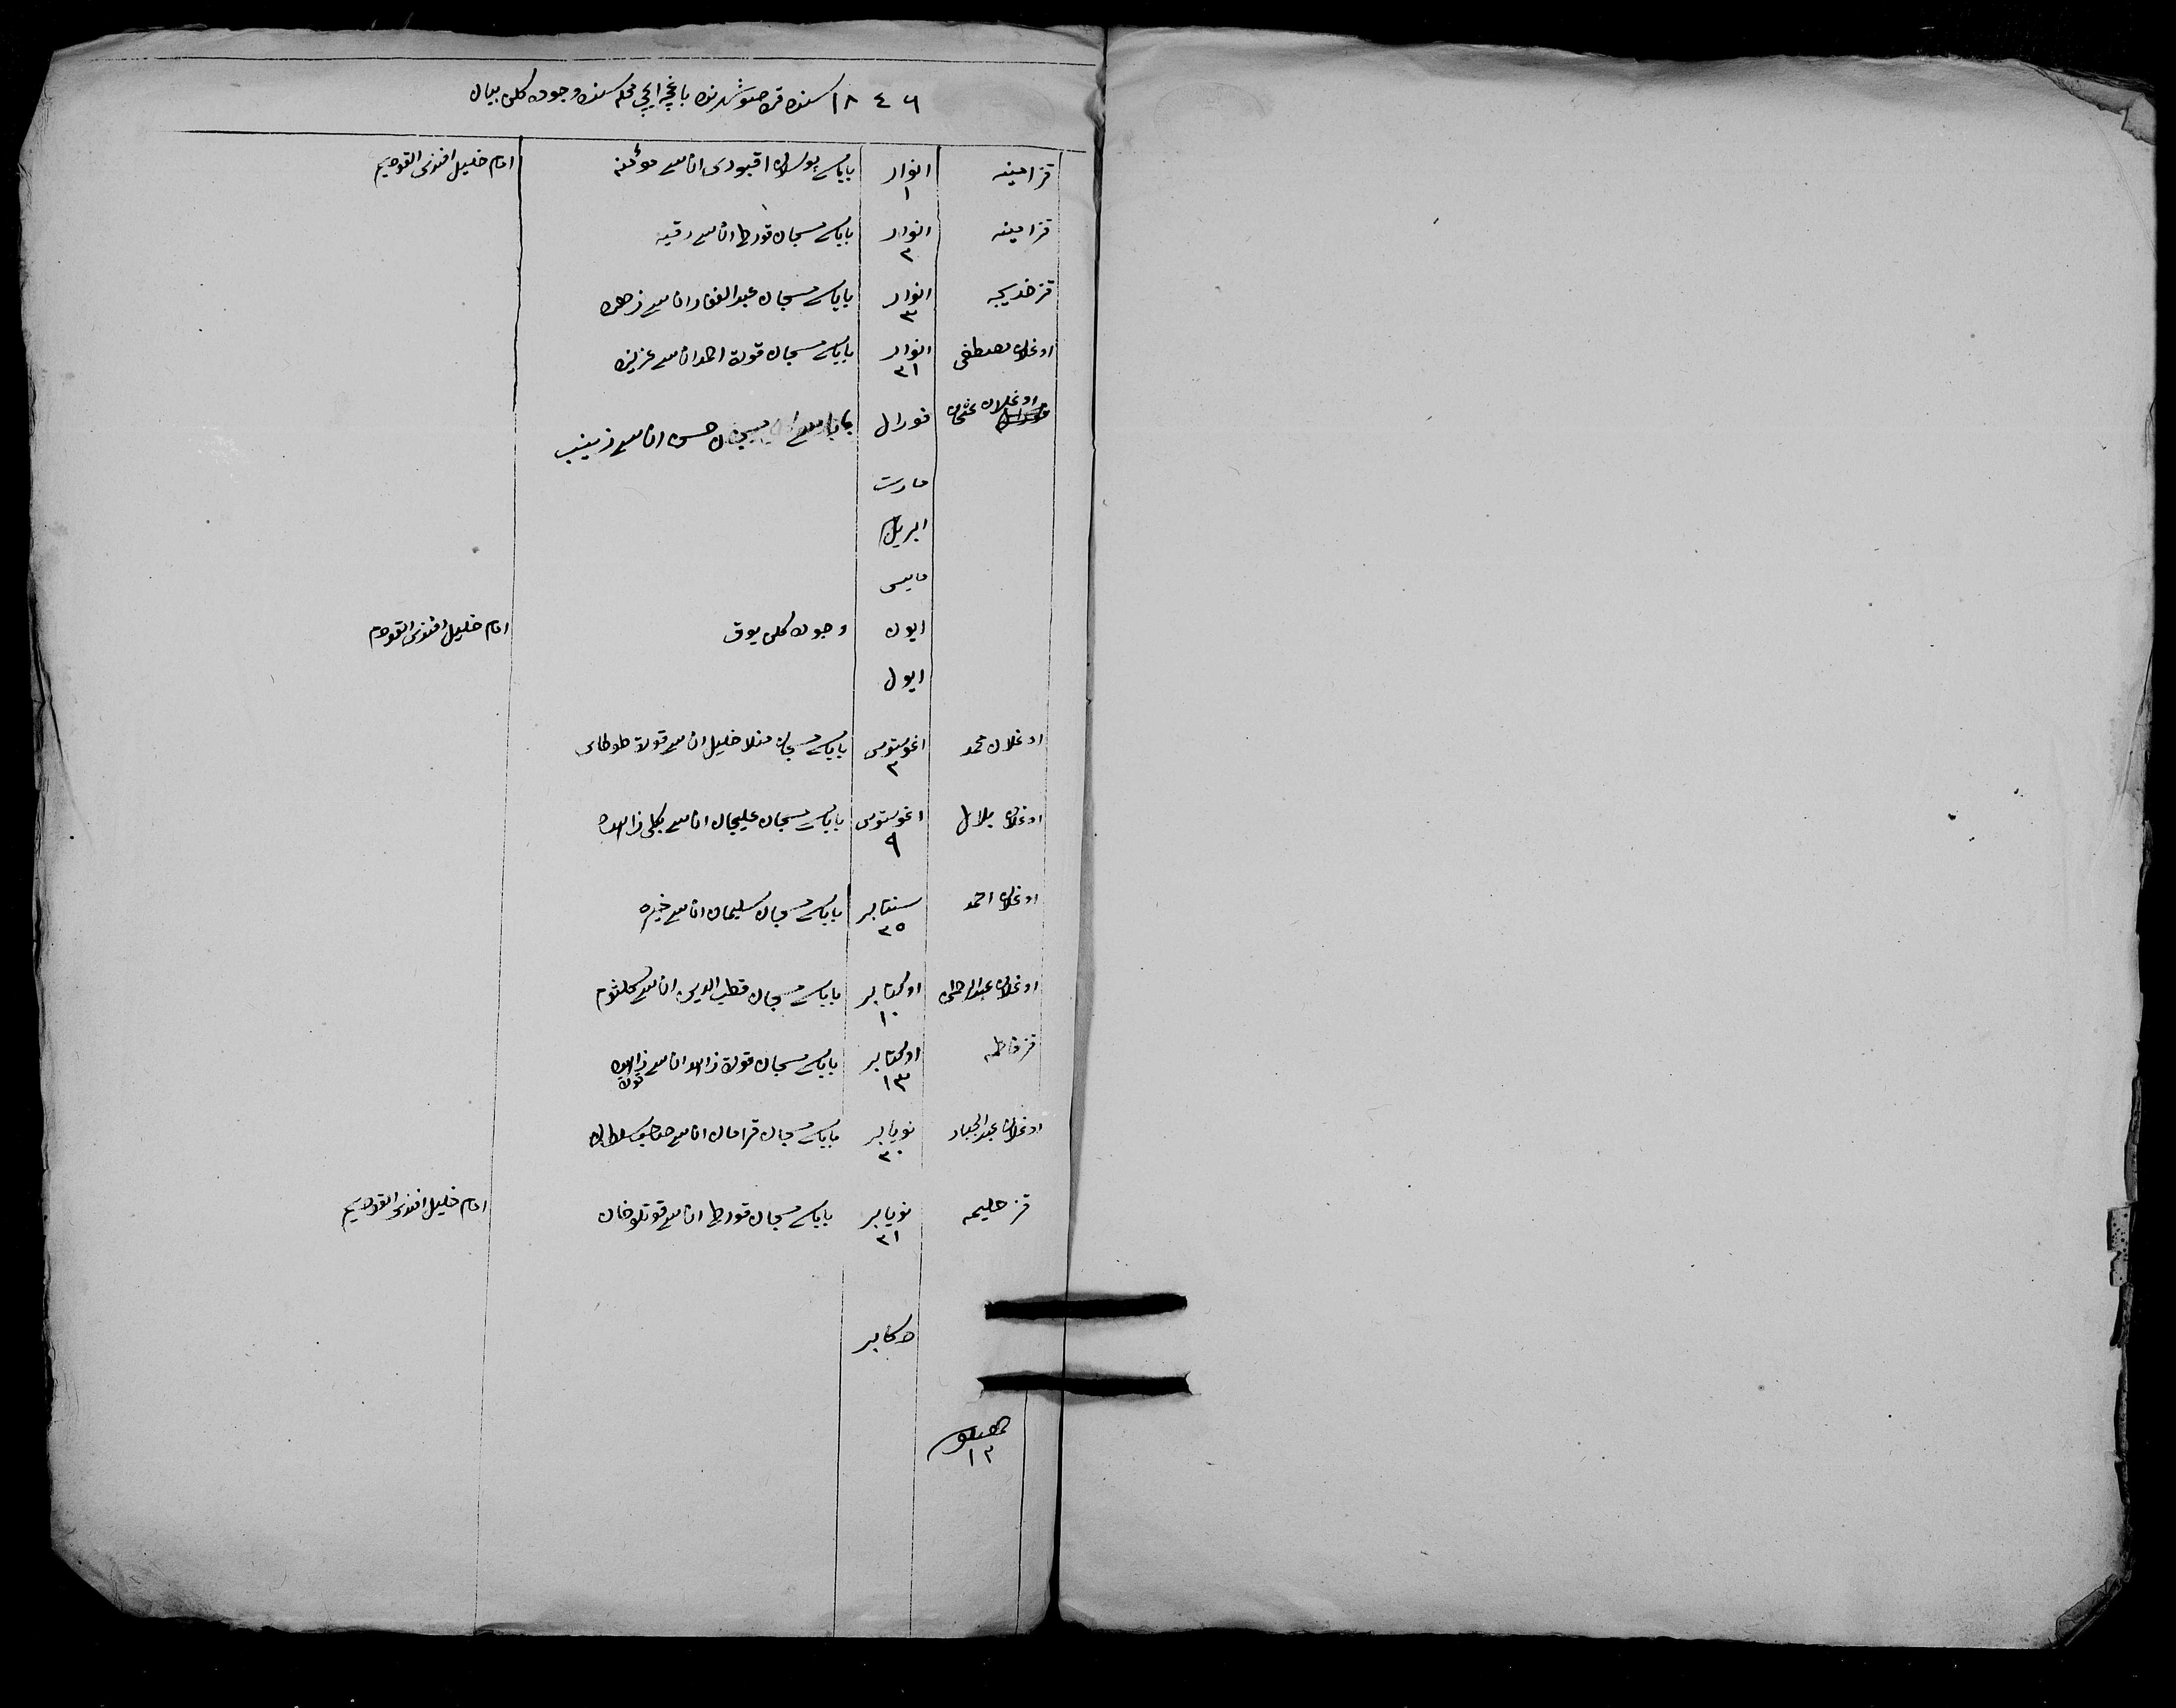 ١٨٤٦ سنه‌ده قره‌صو شهرنده باغچه ایچی محله‌سنده وجوده کلن بیان
قز امینه انوار ١ باباسی بوسلان اقبودی اناسی مؤمنه امام خلیل افندی القودیم
قز امینه انوار ٢ باباسی مسجان قورطه اناسی رقیه
قز خدیجه انوار ٣ باباسی مسجان عبد الغفار اناسی زهره
اوغلان مصطفی انوار ٢١ باباسی مسجان قورت احمد اناسی عزیزه
اوغلان عثمان فورال باباسی مسجان حسن اناسی زینب
مارت
ابریل
مایس
ایون وجوده کلن یوق امام خلیل افندی القودم
ایول
اوغلان محمد اغوستوس ٢ باباسی مسجان منلا خلیل اناسی قورت طوطای
اوغلان بلال اغوستوس ٩ باباسی مسجان علیجان اناسی بکلی زاهده
اوغلان احمد سنتابر ٢٥ باباسی مسجان سلیمان اناسی خیره
اوغلان عبد الرحمن اوکتابر ١٠ باباسی مسجان قطب الدین اناسی کلثوم
قز فاطمه اوکتابر ١٣ باباسی مسجان قورت زاهد اناسی قورت زاهده
اوغلان عبد الجبار نویابر ٢٠ باباسی مسجان قرامان اناسی صاحب سلطان
قز حلیمه نویابر ٢١ باباسی مسجان قورطه اناسی قوتلوخان امام خلیل افندی القودیم
دکابر
جمعسی ١٢